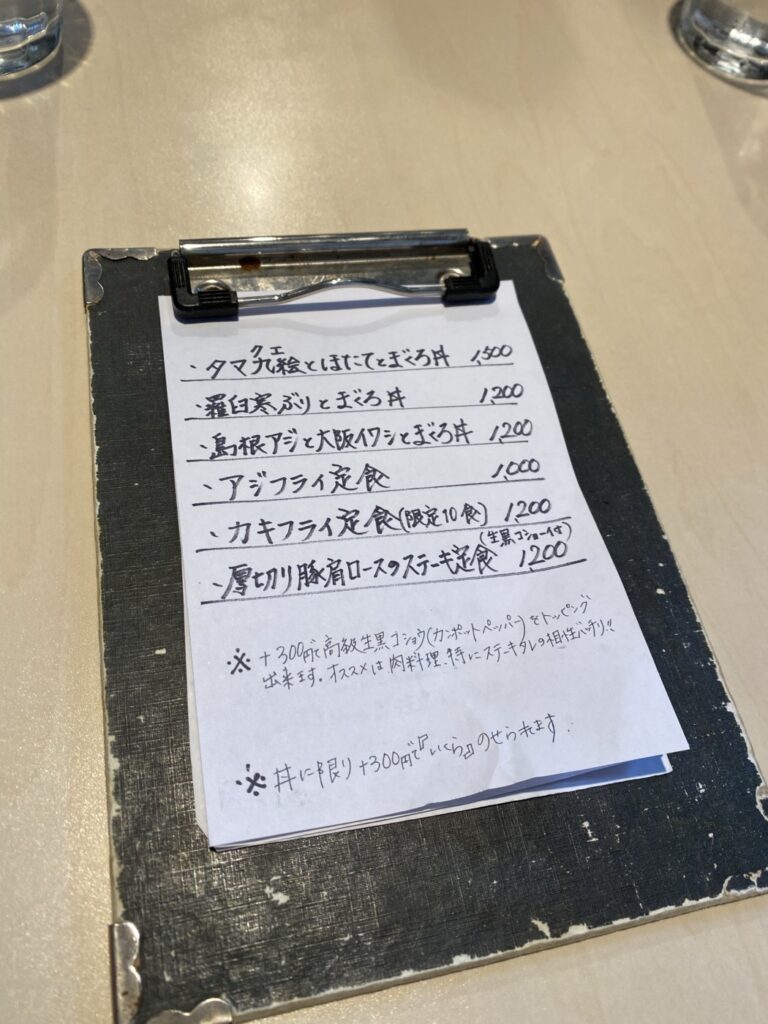 クエ
・タマ九絵とほたてとまぐろ丼 1,500
・羅臼寒ぶりとまぐろ丼 1,200
・島根アジと大阪イワシとまぐろ丼 1,200
・アジフライ定食 1,000
・カキフライ定食(限定10食) 1,200
(生黒コショー付)
・厚切り豚肩ロースのステーキ定食 1,200
※ +300円で高級生黒コショウ(カンポットペッパー)をトッピング
出来ます。オススメは肉料理、特にステーキタレの相性バッチリ!!
※ 丼に限り+300円で『いくら』のせられます.